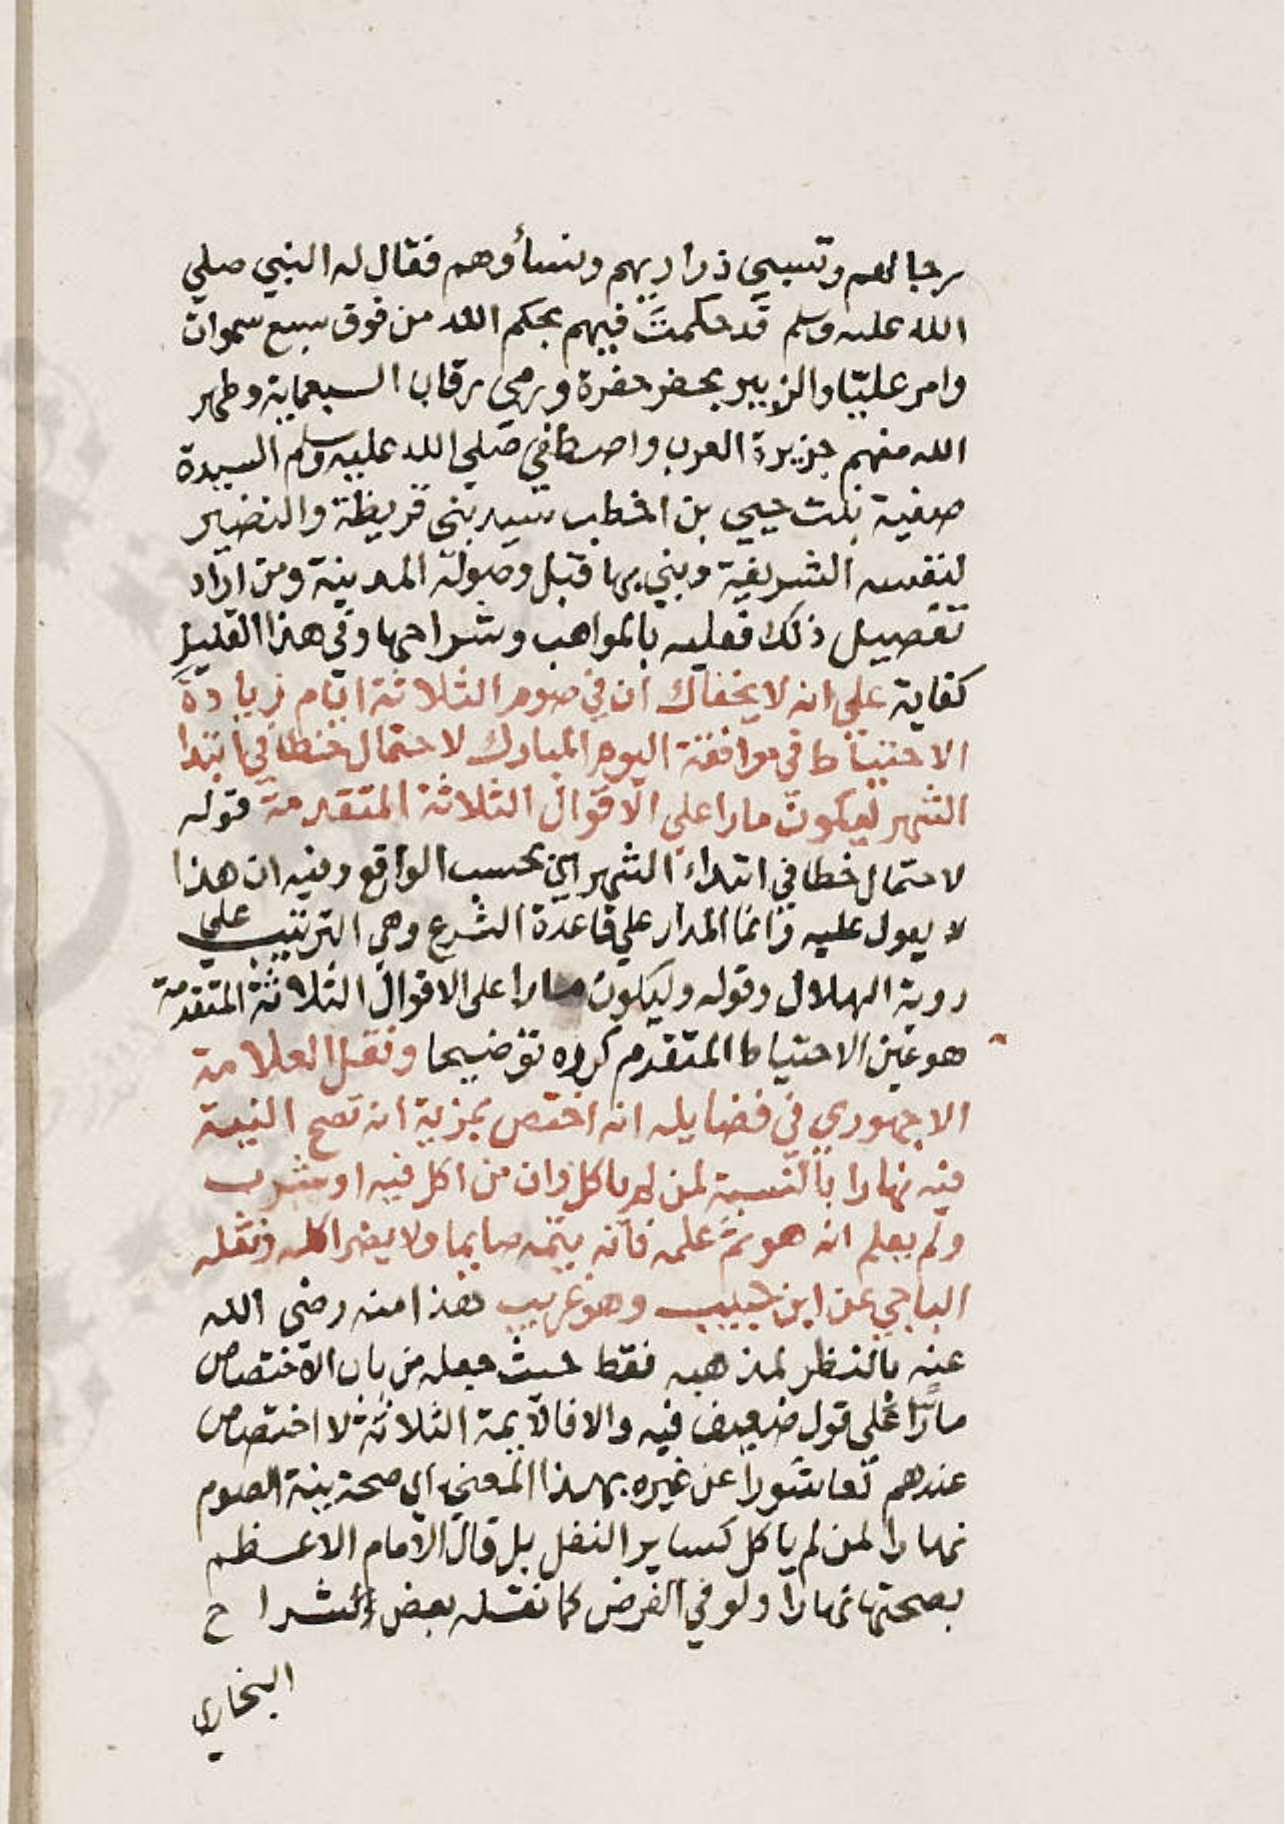 رجالهم وتسبي ذراريهم ونساؤهم فقال له النبي صلي
الله عليه وسلم قد حكمتَ فيهم بحكم الله من فوق سبع سموات
وامر عليّا والزبير بحفر حفرة ورمي رقاب السبعماية وطهر
الله منهم جزيرة العرب واصطفي صلي الله عليه وسلم السيدة
صفية بنت حيي بن اخطب سيد بني قريظة والنضير
لنفسه الشريفة وبني بها قبل وصوله المدينة ومن اراد
تفصيل ذلك فعليه بالمواهب وشراحها وفي هذا القليل
كفاية علي انه لا يخفاك ان في صوم الثلاثة ايام زيادة
الاحتياط في موافقة اليوم المبارك لاحتمال خطا في ابتدا
الشهر ليكون مارا علي الاقوال الثلاثة المتقدمة قوله
لاحتمال خطا في ابتداء الشهر اي بحسب الواقع وفيه ان هذا
لا يعول عليه وانما المدار علي قاعدة الشرع وهي الترتيب علي
روية الهلال وقوله وليكون مارا علي الاقوال الثلاثة المتقدمة
هو عين الاحتياط المتقدم كرره توضيحا ونقل العلامة
الاجهوري في فضايله انه اختص بمزية انه تصح النية
فيه نهارا بالنسبة لمن لم ياكل وان من اكل فيه او شرب
ولم يعلم انه هو ثم علمه فانه يتمه صايما ولا يضر اكله ونقله
الباجي عن ابن حبيب وهو غريب هذا منه رضي الله
عنه بالنظر لمذهبه فقط حيث جعله من باب الاختصاص
مارّا علي قول ضعيف فيه والا فالايمة الثلاثة لا اختصاص
عندهم لعاشورا عن غيره بهذا المعني اي صحة نية الصوم
نهارا لمن لم ياكل كساير النفل بل قال الامام الاعظم
بصحتها نهارا ولو في الفرض كما نقله بعض شراح
البخاري